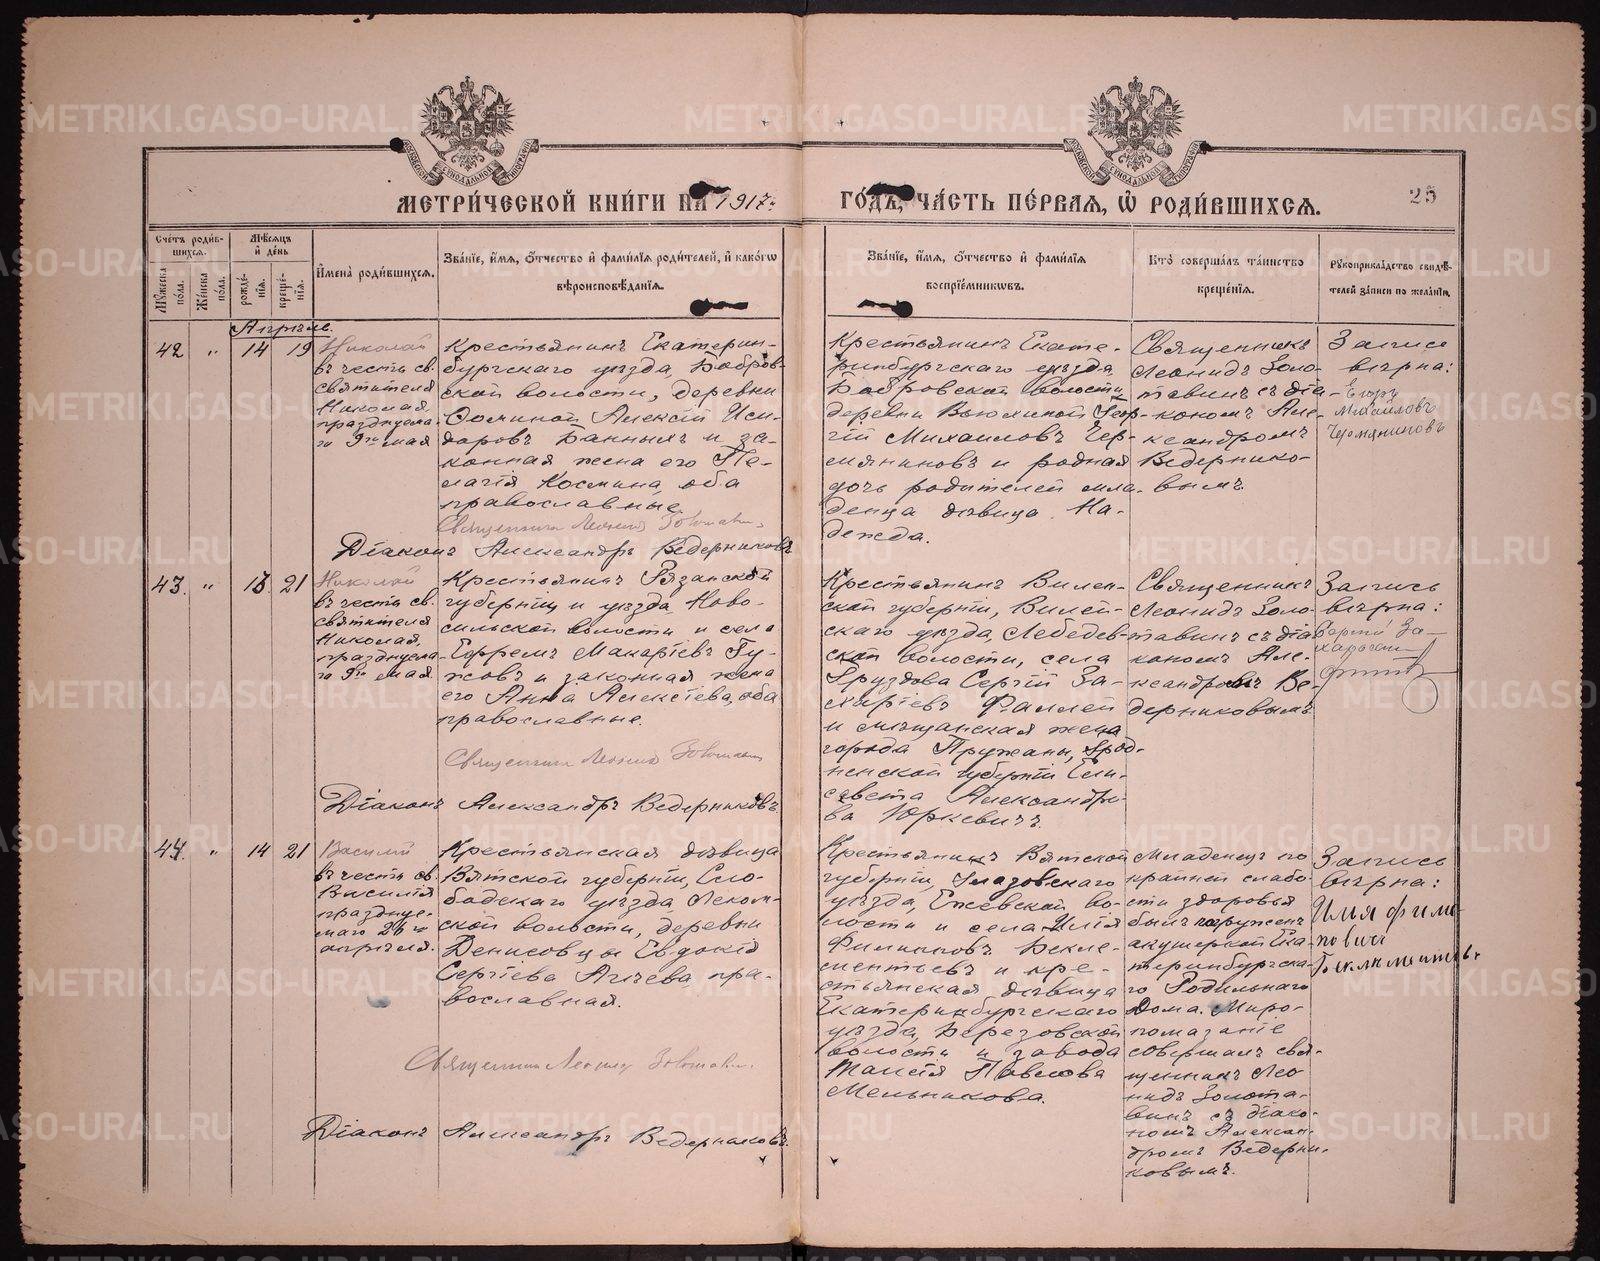 МЕТРИЧЕСКОЙ КНИГИ НА 1917
ГОДЪ, ЧАСТЬ ПЕРВАЯ, Ѡ РОДИВШИХСЯ.
25
Счетъ родив-
шихся.
Мѣсяцъ
и день
Мужеска пола.
Женска пола.
рожде-
нія.
креще-
нія.
Имена родившихся.
Званіе, имя, отчество и фамилія родителей, и какогѡ
вѣроисповѣданія.
Званіе, имя, отчество и фамилія
воспріемникѡвъ.
Кто совершалъ таинство
крещенія.
Рукоприкладство свидѣ-
телей записи по желанію.
Апрѣль.
42 " 14 19
Николай
въ честь св.
святителя
Николая,
празднуема-
го 9го мая
Крестьянинъ Екатерин-
бургскаго уѣзда, Бобров-
ской волости, деревни
Ѳоминой Алексій Иси-
доровъ Банныхъ и за-
конная жена его Пе-
лагія Космина, оба
православные.
Священникъ Леонидъ Золотавинъ
Діаконъ Александръ Ведерниковъ
Крестьянинъ Екате-
ринбургскаго уѣзда,
Бобровской волости,
деревни Вьюхиной Геор-
гій Михаиловъ Чер-
мяниновъ и родная
дочь родителей мла-
денца дѣвица На-
дежда.
Священникъ
Леонидъ Золо-
тавинъ съ діа-
кономъ Але-
ксандромъ
Ведернико-
вымъ.
Запись
вѣрна:
Егоръ
Михайловъ
Чермяниновъ
43. " 13 21
Николай
въ честь св.
святителя
Николая,
празднуема-
го 9го мая.
Крестьянинъ Рязанской
губерніи и уѣзда, Ново-
сильской волости и села
Ефремъ Макаріевъ Гу-
жовъ и законная жена
его Анна Алексіева, оба
православные.
Священникъ Леонидъ Золотавинъ
Діаконъ Александръ Ведерниковъ
Крестьянинъ Вилен-
ской губерніи, Вилей-
скаго уѣзда, Лебедев-
ской волости, села
Груздова Сергій За-
харіевъ Фаллей
и мѣщанская жена
города Пружаны, Грод-
ненской губерніи Ели-
савета Александро-
ва Юркевичъ.
Священникъ
Леонидъ Золо-
тавинъ съ діа-
кономъ Але-
ксандромъ Ве-
дерниковымъ
Запись
вѣрна:
Сергій За-
44. " 14 21
Василій
въ честь св.
Василія
праздnуе-
маго 26го
апрѣля.
Крестьянская дѣвица
Вятской губерніи, Сло-
бодского уѣзда Леком-
ской волости, деревни
Денисовцы Евдокія
Сергіева Агѣева пра-
вославная.
Священникъ Леонидъ Золотавинъ.
Діаконъ Александръ Ведерниковъ.
Крестьянинъ Вятской
губерніи, Глазовскаго
уѣзда, Ежевской во-
лости и села Илія
Филипповъ Бекле-
ментьевъ и кре-
стьянская дѣвица
Екатеринбургскаго
уѣзда, Березовской
волости и завода
Таисія Павлова
Мельникова.
Младенецъ по
крайней слабо-
сти здоровья
былъ погруженъ
акушеркой Ека-
теринбургска-
го Родильнаго
Дома. Миро-
помазаніе
совершалъ свя-
щенникъ Лео-
нидъ Золота-
винъ съ діако-
номъ Алексан-
дромъ Ведерни-
ковымъ.
Запись
вѣрна:
Илья Фили-
повичъ
METRIKI.GASO-URAL.RU